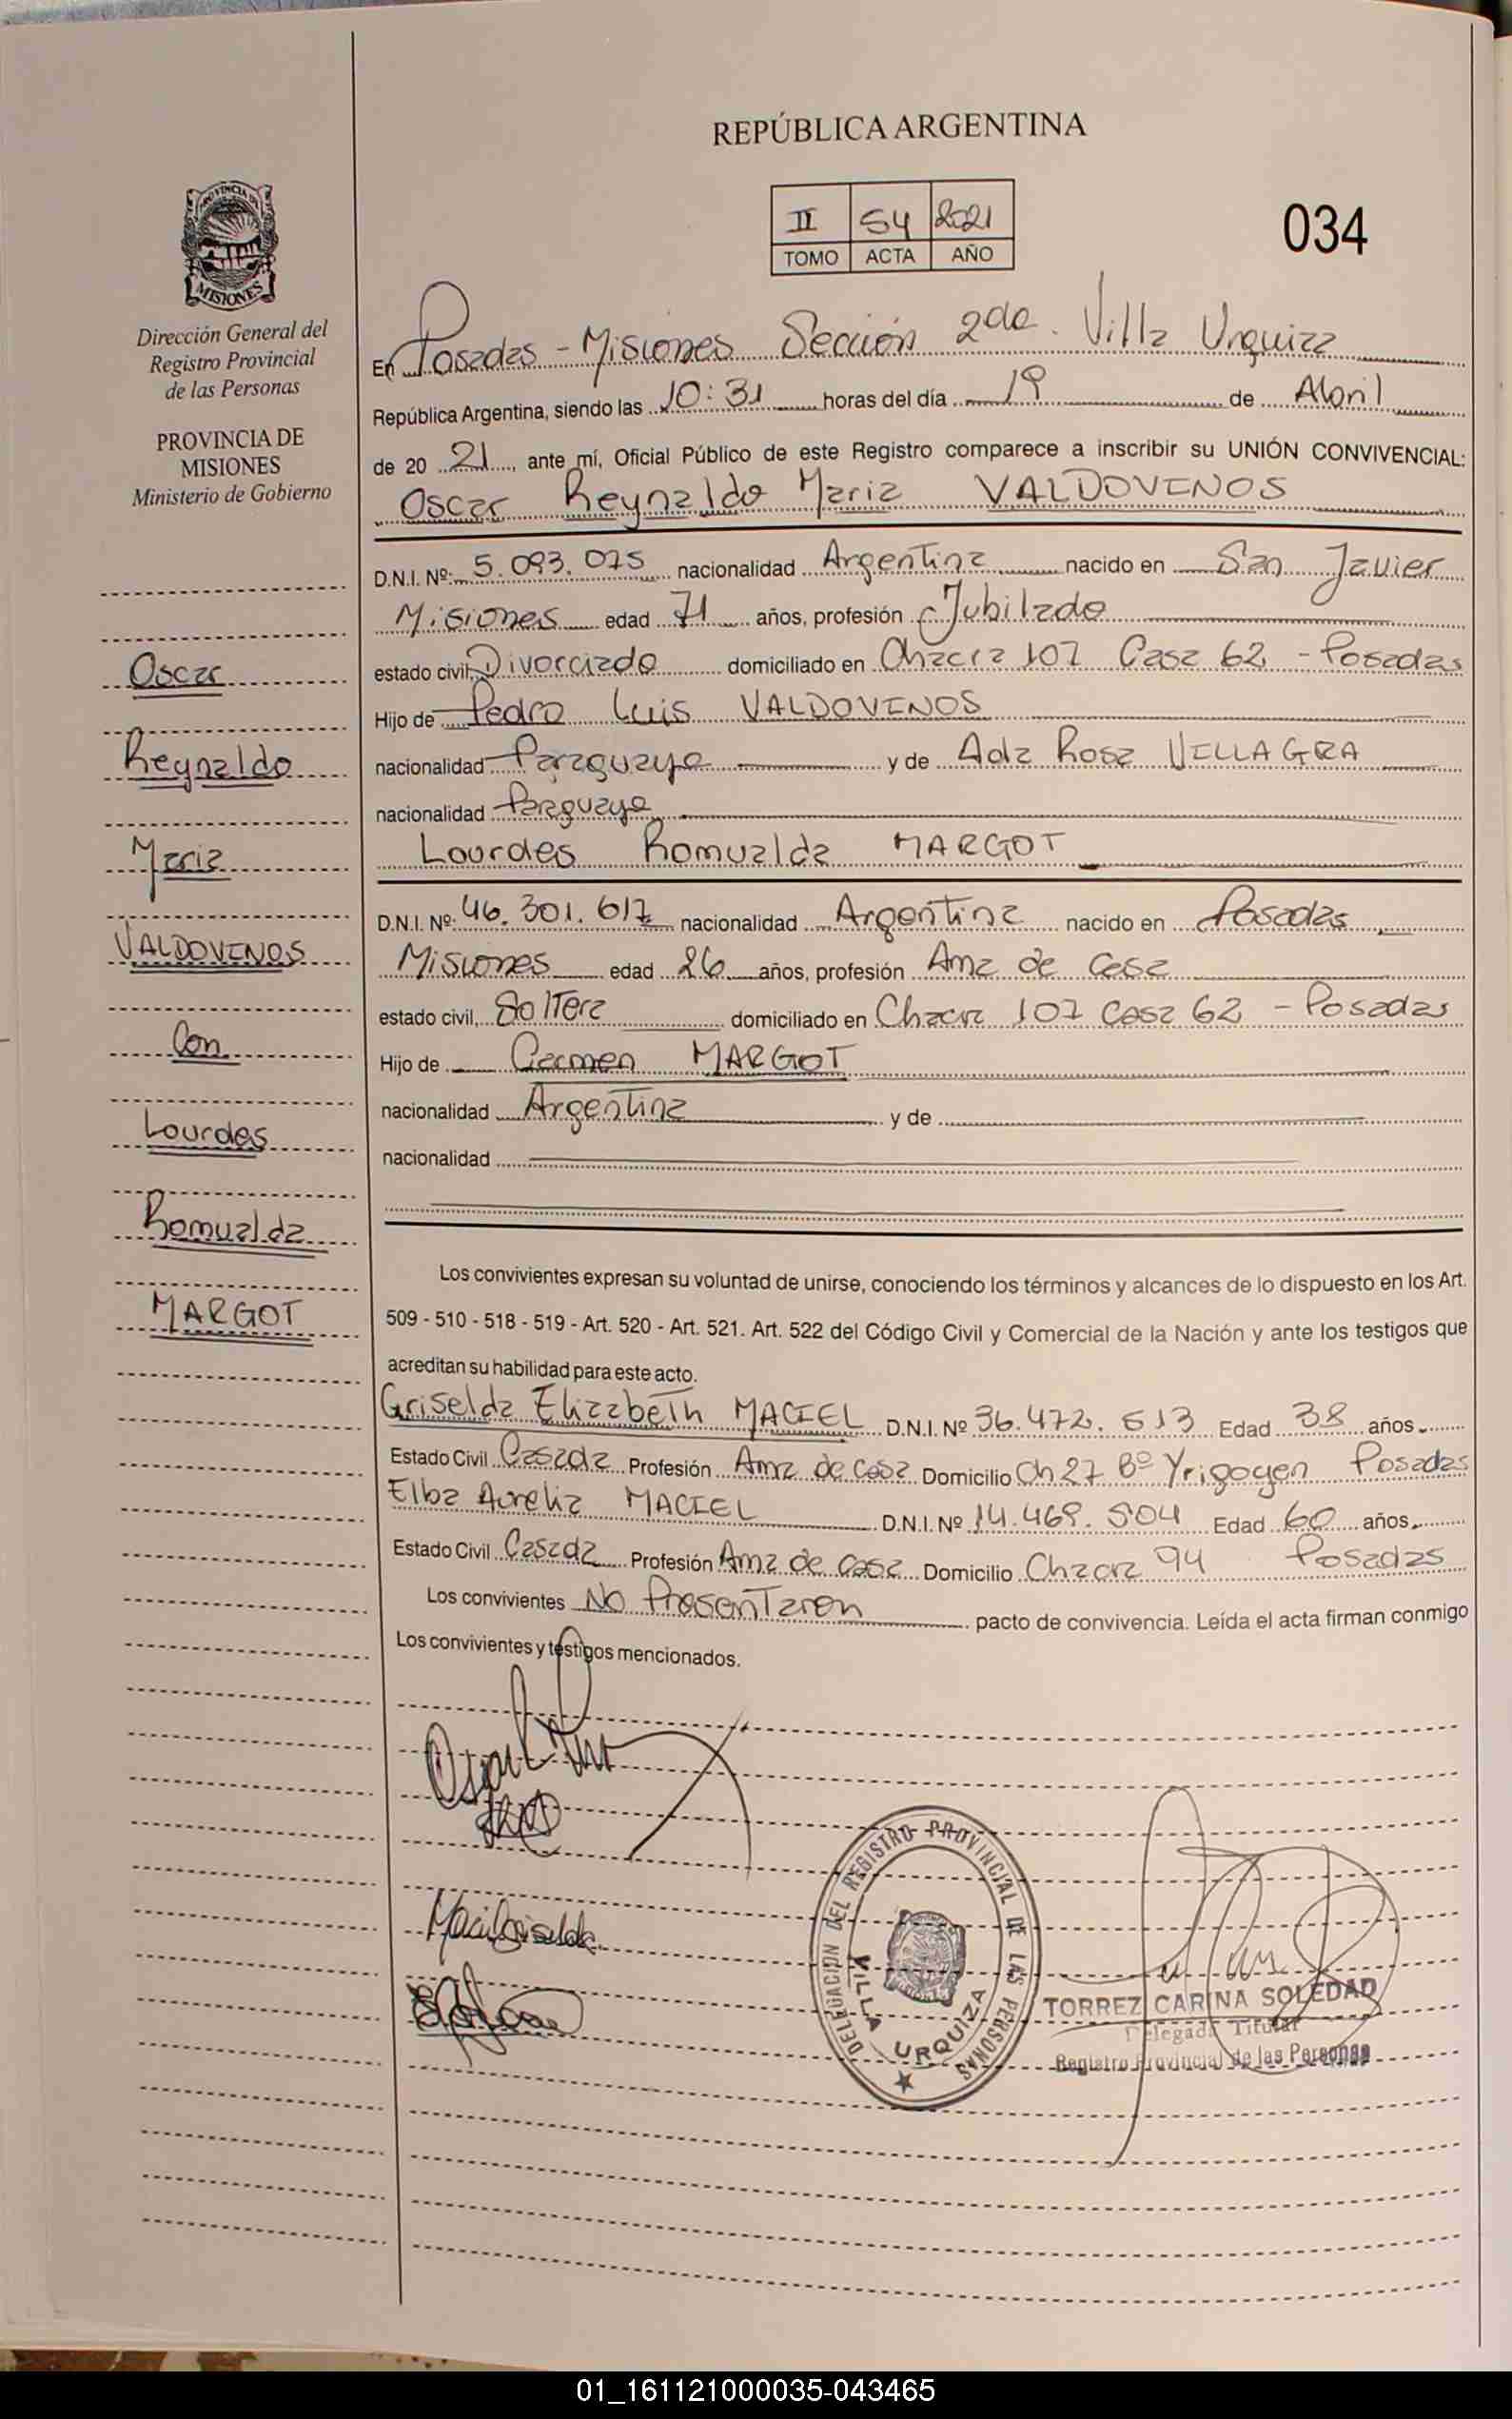 REPÚBLICA ARGENTINA
II 54 2021
TOMO ACTA AÑO
034
PROVINCIA DE
MISIONES
Dirección General del
Registro Provincial
de las Personas
PROVINCIA DE
MISIONES
Ministerio de Gobierno
Oscar
Reynaldo
Maria
VALDOVINOS
Con
Lourdes
Romualda
MARGOT
En Posadas - Misiones Sección 2da. Villa Urquiza
República Argentina, siendo las 10:31 horas del día 19 de Abril
de 20 21, ante mí, Oficial Público de este Registro comparece a inscribir su UNIÓN CONVIVENCIAL:
Oscar Reynaldo Maria VALDOVINOS
D.N.I. Nº: 5.093.075 nacionalidad Argentina nacido en San Javier
Misiones edad 71 años, profesión Jubilado
estado civil, Divorciado domiciliado en Chacra 107 Casa 62 - Posadas
Hijo de Pedro Luis VALDOVINOS
nacionalidad Paraguaya y de Ada Rosa VILLAGRA
nacionalidad Paraguaya
Lourdes Romualda MARGOT
D.N.I. Nº: 46.301.617 nacionalidad Argentina nacido en Posadas
Misiones edad 26 años, profesión Ama de Casa
estado civil, Soltera domiciliado en Chacra 107 Casa 62 - Posadas
Hijo de Carmen MARGOT
nacionalidad Argentina y de
nacionalidad
Los convivientes expresan su voluntad de unirse, conociendo los términos y alcances de lo dispuesto en los Art.
509 - 510 - 518 - 519 - Art. 520 - Art. 521. Art. 522 del Código Civil y Comercial de la Nación y ante los testigos que
acreditan su habilidad para este acto.
Griselda Elizabeth MACIEL D.N.I. Nº 36.472.513 Edad 38 años
Estado Civil Casada Profesión Ama de Casa Domicilio Ch 27 Bº Yrigoyen Posadas
Elba Aurelia MACIEL D.N.I. Nº 14.469.504 Edad 60 años
Estado Civil Casada Profesión Ama de casa Domicilio Chacra 94 Posadas
Los convivientes No Presentaron pacto de convivencia. Leída el acta firman conmigo
Los convivientes y testigos mencionados.
DELEGACION DEL REGISTRO PROVINCIAL DE LAS PERSONAS
VILLA URQUIZA
TORREZ CARINA SOLEDAD
Delegada Titular
Registro Provincial de las Personas
01_161121000035-043465